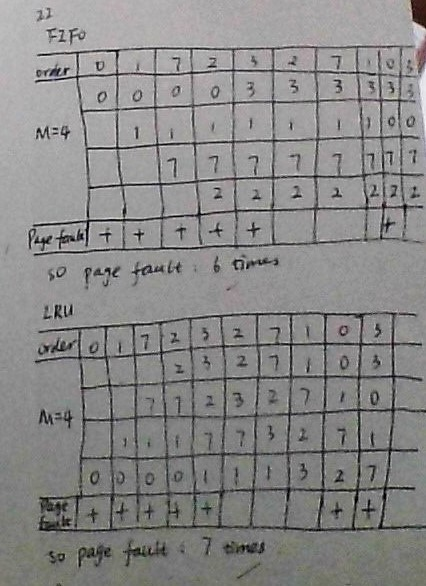 22
FIFO
order 0 1 7 2 3 2 7 1 0 3
0 0 0 0 3 3 3 3 3 3
M=4 1 1 1 1 1 1 1 0 0
7 7 7 7 7 7 7 7
2 2 2 2 2 2 2
Page fault + + + + + +
so page fault : 6 times
LRU
order 0 1 7 2 3 2 7 1 0 3
2 3 2 7 1 0 3
M=4 7 7 2 3 2 7 1 0
1 1 1 7 7 3 2 7 1
0 0 0 0 1 1 1 3 2 7
Page fault + + + + + + +
so page fault : 7 times